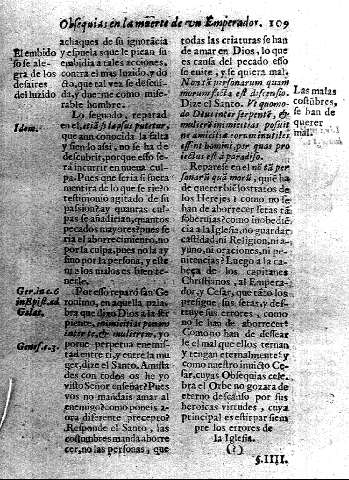 Obsequias en la muerte de vn Emperador. 109
El embidioso se alegra de los desaires del luzido
Idem.
Ger. in c. 6 in Epist. ad Galat.
Genes. c. 3.
achaques de su ignorãcia
y espuela que le pican su
embidia a tales acciones,
contra el mas luzido, y docto,
que tal vez se descuida,
y duerme como miserable
hombre.
Lo segundo, reparad
en el, etiã si lapsus putetur,
que aun conocida la falta
y siendo assi, no se ha de
descubrir, porque esso será
incurrir en nueva culpa.
Pues que seria si fuera
mentira de lo que se rie?
testimonio de su
passion? ay quantas culpas
se añadirian, quantos
pecados mayores? pues seria
el aborrecimiento, no
por la culpa, pues no la ay
sino por la persona, y esse
ni e los malos es bien tenerle.
Por esso reparò san Geronimo,
en aquella palabra
que dixo Dios a la serpiente,
inimicitias ponam
inter te, & mulierem, yo
porne perpetua enemistad
entre ti, y entre la muger,
dize el Santo. Amistades
con todos os he yo
visto Señor enseñar? Pues
vos no mandais amar al
enemigo? como poneis aora
diferente precepto?
Responde el Santo, las
costumbres manda aborrecer,
no las personas, que
todas las criaturas se han
de amar en Dios, lo que
es causa del pecado esso
se evite, y se quiera mal.
Nõ tã personarum quam
morum facta est dissensio.
Dize el Santo. Vt quomodo
Diuinitus serpentẽ, &
mulierẽ inimicitias posuit
ne amicitia eorum inutiles
esset homini, per quas proiectus
est à paradiso.
Reparese en el nõ tã personarũ
quã morũ, quiẽ ha
de querer biẽ los tratos de
los Herejes? como no se
han de aborrecer setas tã
sobervias? como inobediẽcia
a la Iglesia, no guardar
castidad, ni Religion, ni ayuno,
ni oraciones, ni penitencias?
Luego a la cabeça
de los capitanes
Christianos, al Emperador,
y Cesar, que tãto los
persigue sus setas, y destruye
sus errores, como
no le han de aborrecer?
Como no han de dessearle
el mal que ellos ternan
y tengan eternalmente? y
como nuestro inuicto Cesar,
cuyas Obsequias celebra
el Orbe no gozara de
eterno descanso por sus
heroicas virtudes, cuya
principal es estirpar siempre
los errores de
la Iglesia.
(?)
§. IIII.
Las malas costũbres, se han de querer mal.